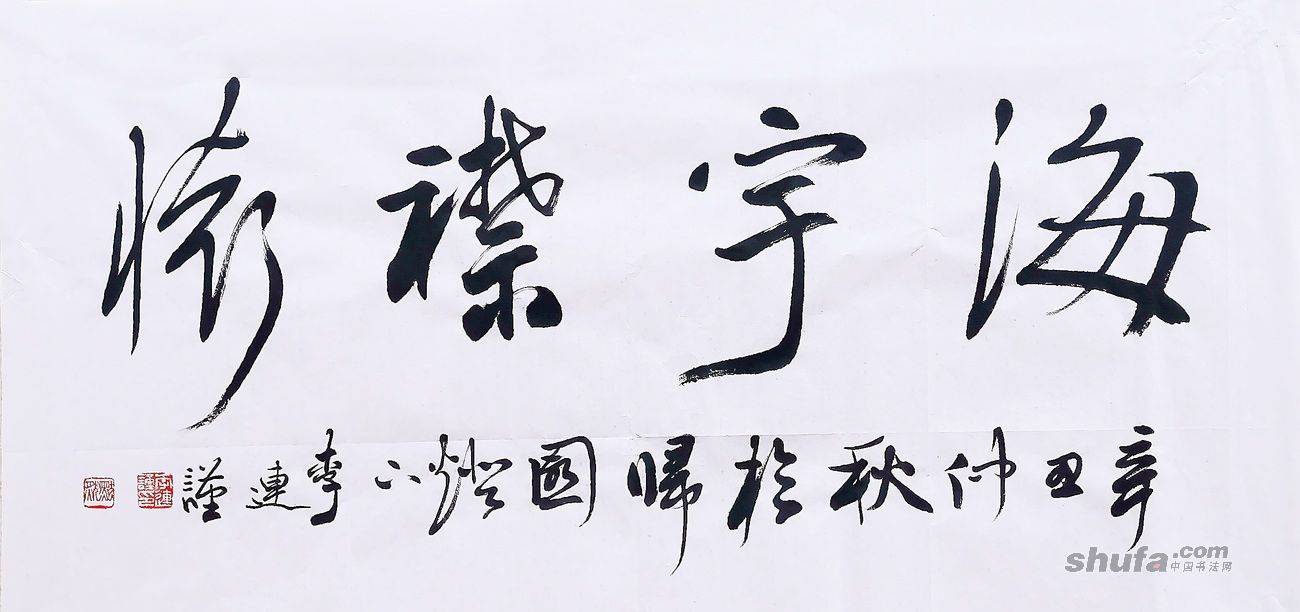 海宇襟懷
辛丑仲秋於歸園燈下李連謹
shufa.com
中国书法网